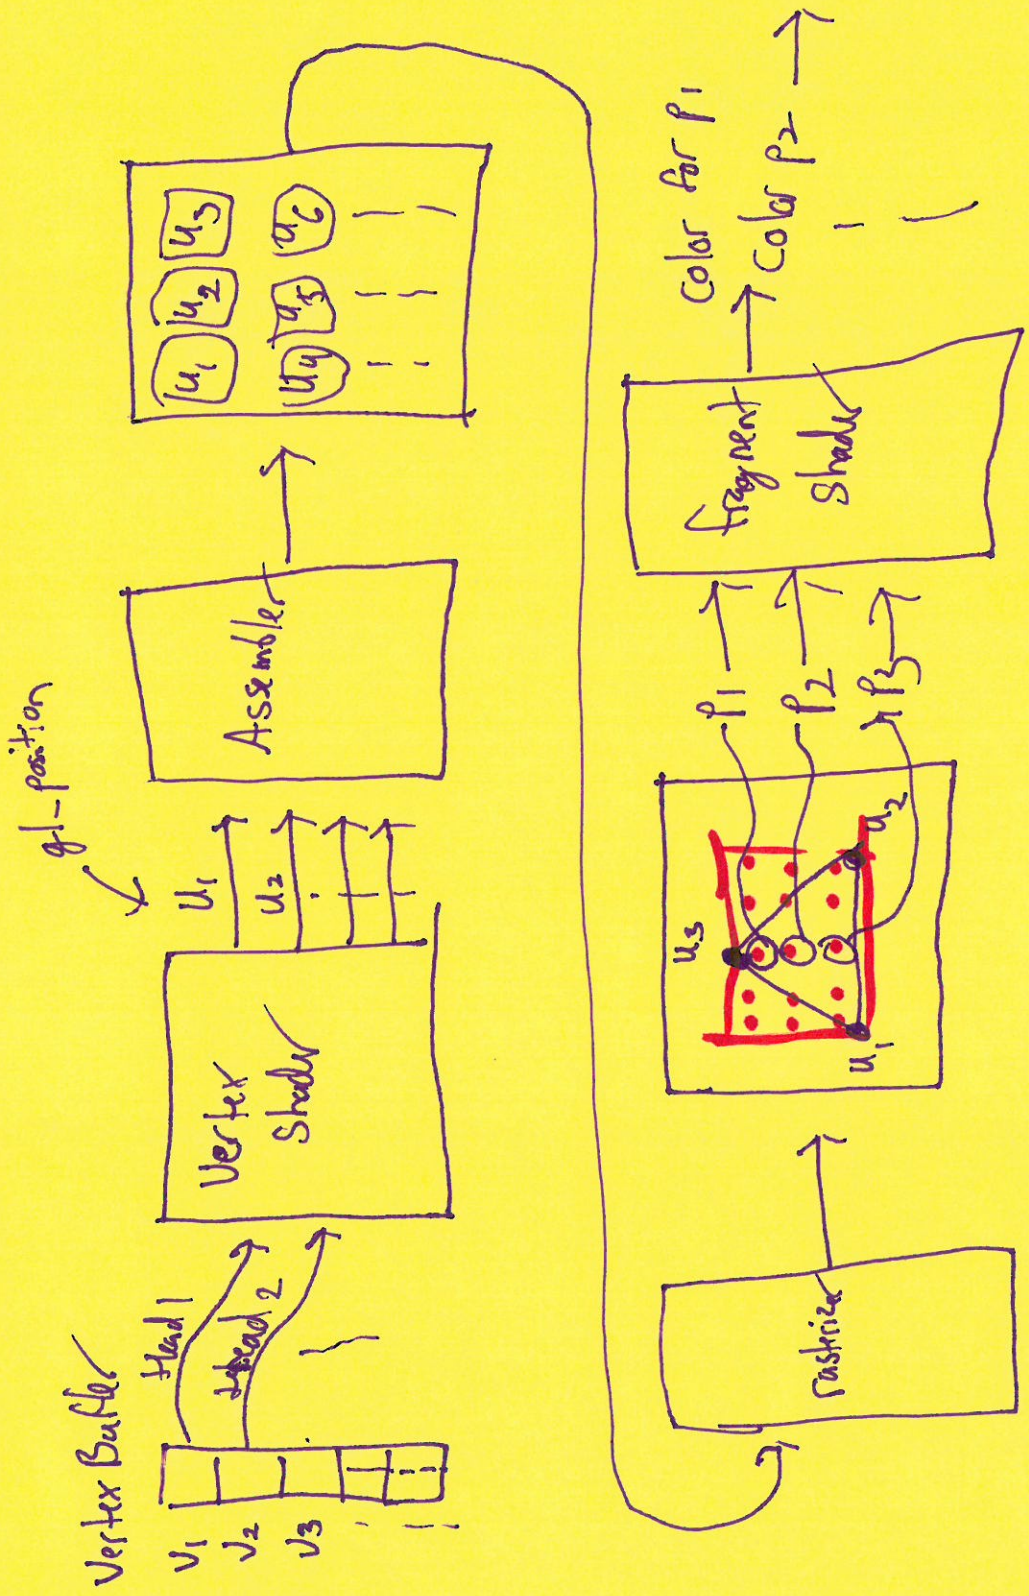 Vertex Buffer
V1
V2
V3
thread 1
thread 2
Vertex
Shader
gl-position
U1
U2
Assembler
U1 U2 U3
U4 U5 U6
rasterize
U3
U1
U2
P1
P2
P3
fragment
Shader
Color for P1
Color P2